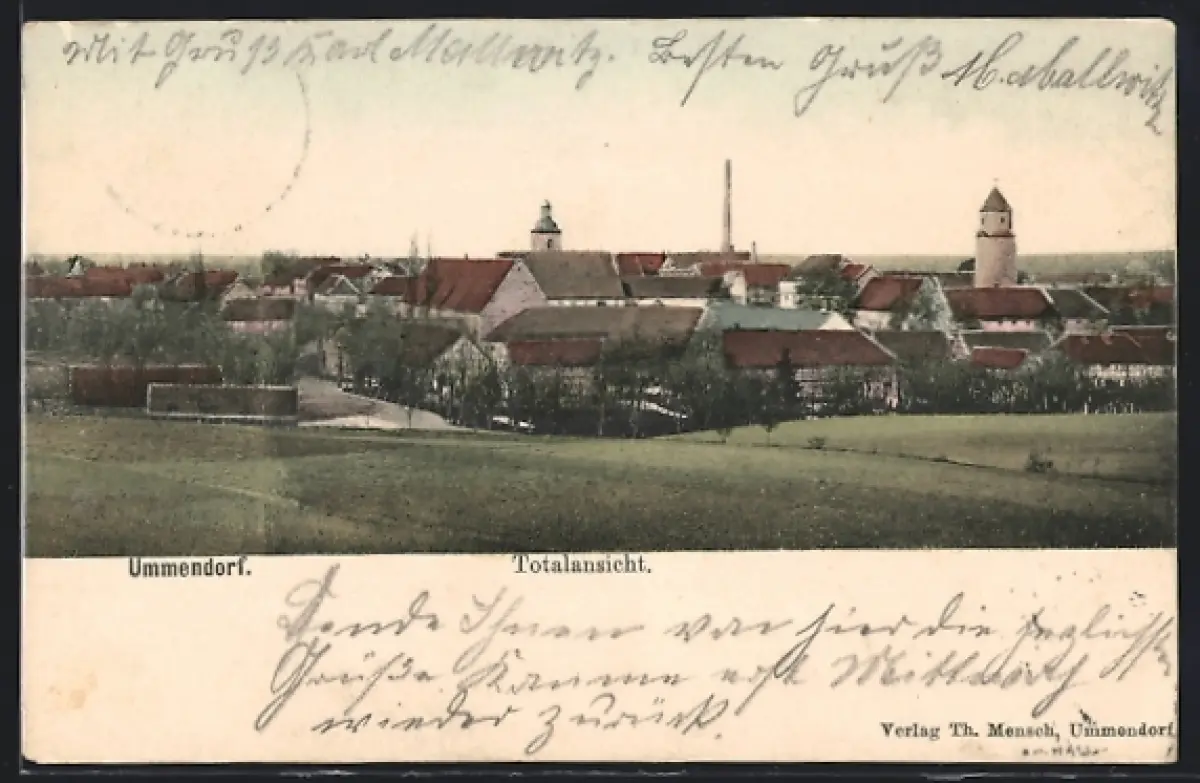 Mit Gruß Karl Mallwitz. Besten Gruß M. Mallwitz
Ummendorf.
Totalansicht.
Sende Ihnen von hier die herzlichsten
Grüße. Komme erst Mittwoch
wieder zurück.
Verlag Th. Mensch, Ummendorf